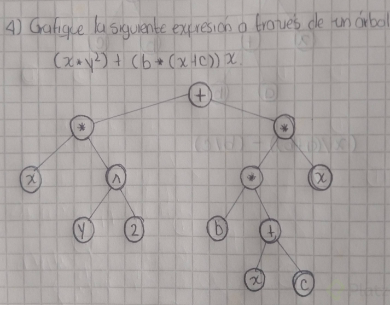 4) Grafique la siguiente expresión a traves de un árbol
(x*y²) + (b*(x+c))x
+
* *
x ^ * x
y 2 b +
x c